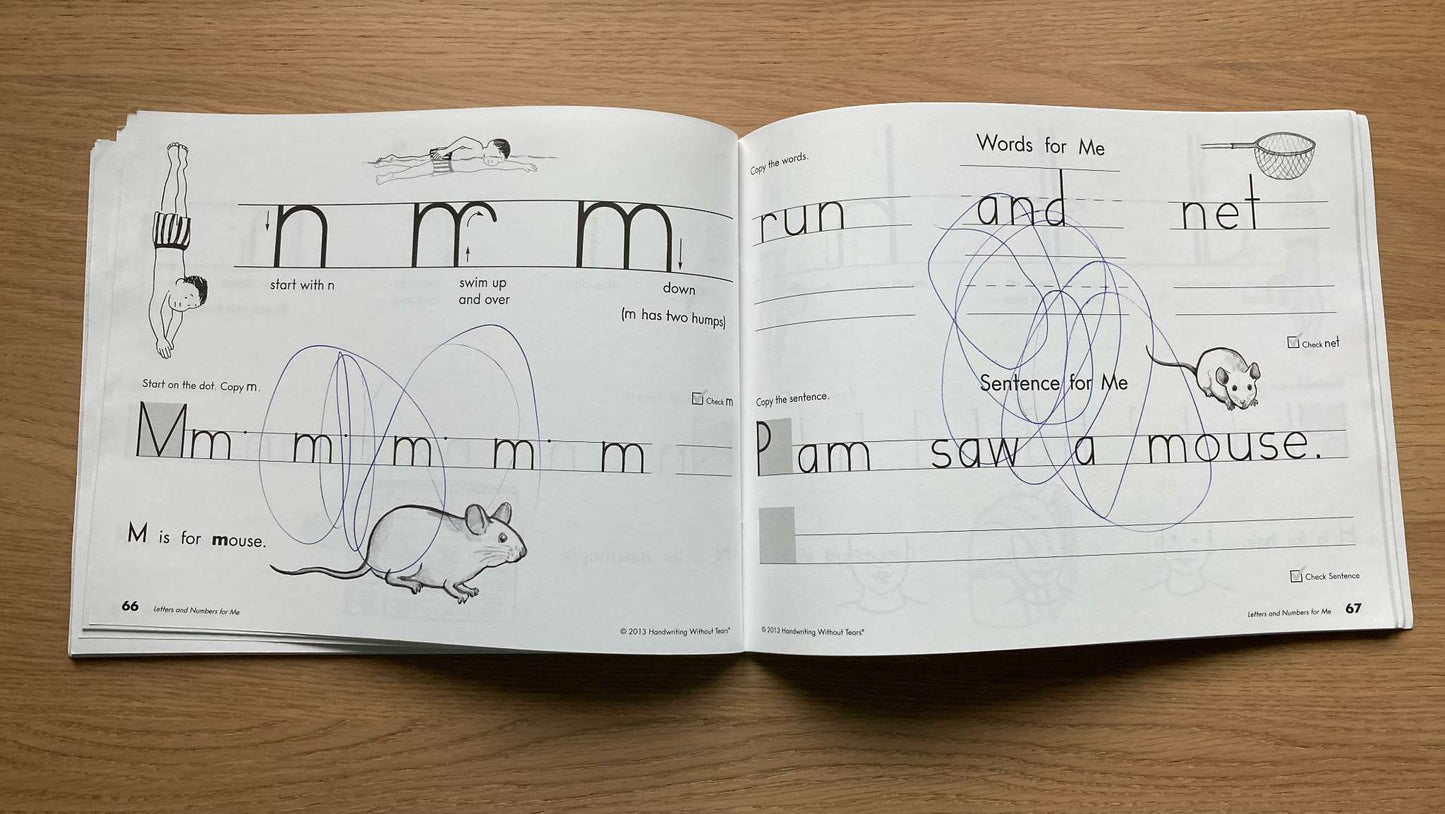 n m m
start with n swim up and over down
(m has two humps)
Start on the dot. Copy m.
Check m
Mm m m m m
M is for mouse.
66 Letters and Numbers for Me
© 2013 Handwriting Without Tears®
Words for Me
Copy the words.
run and net
Check net
Sentence for Me
Copy the sentence.
Pam saw a mouse.
Check Sentence
Letters and Numbers for Me 67
© 2013 Handwriting Without Tears®